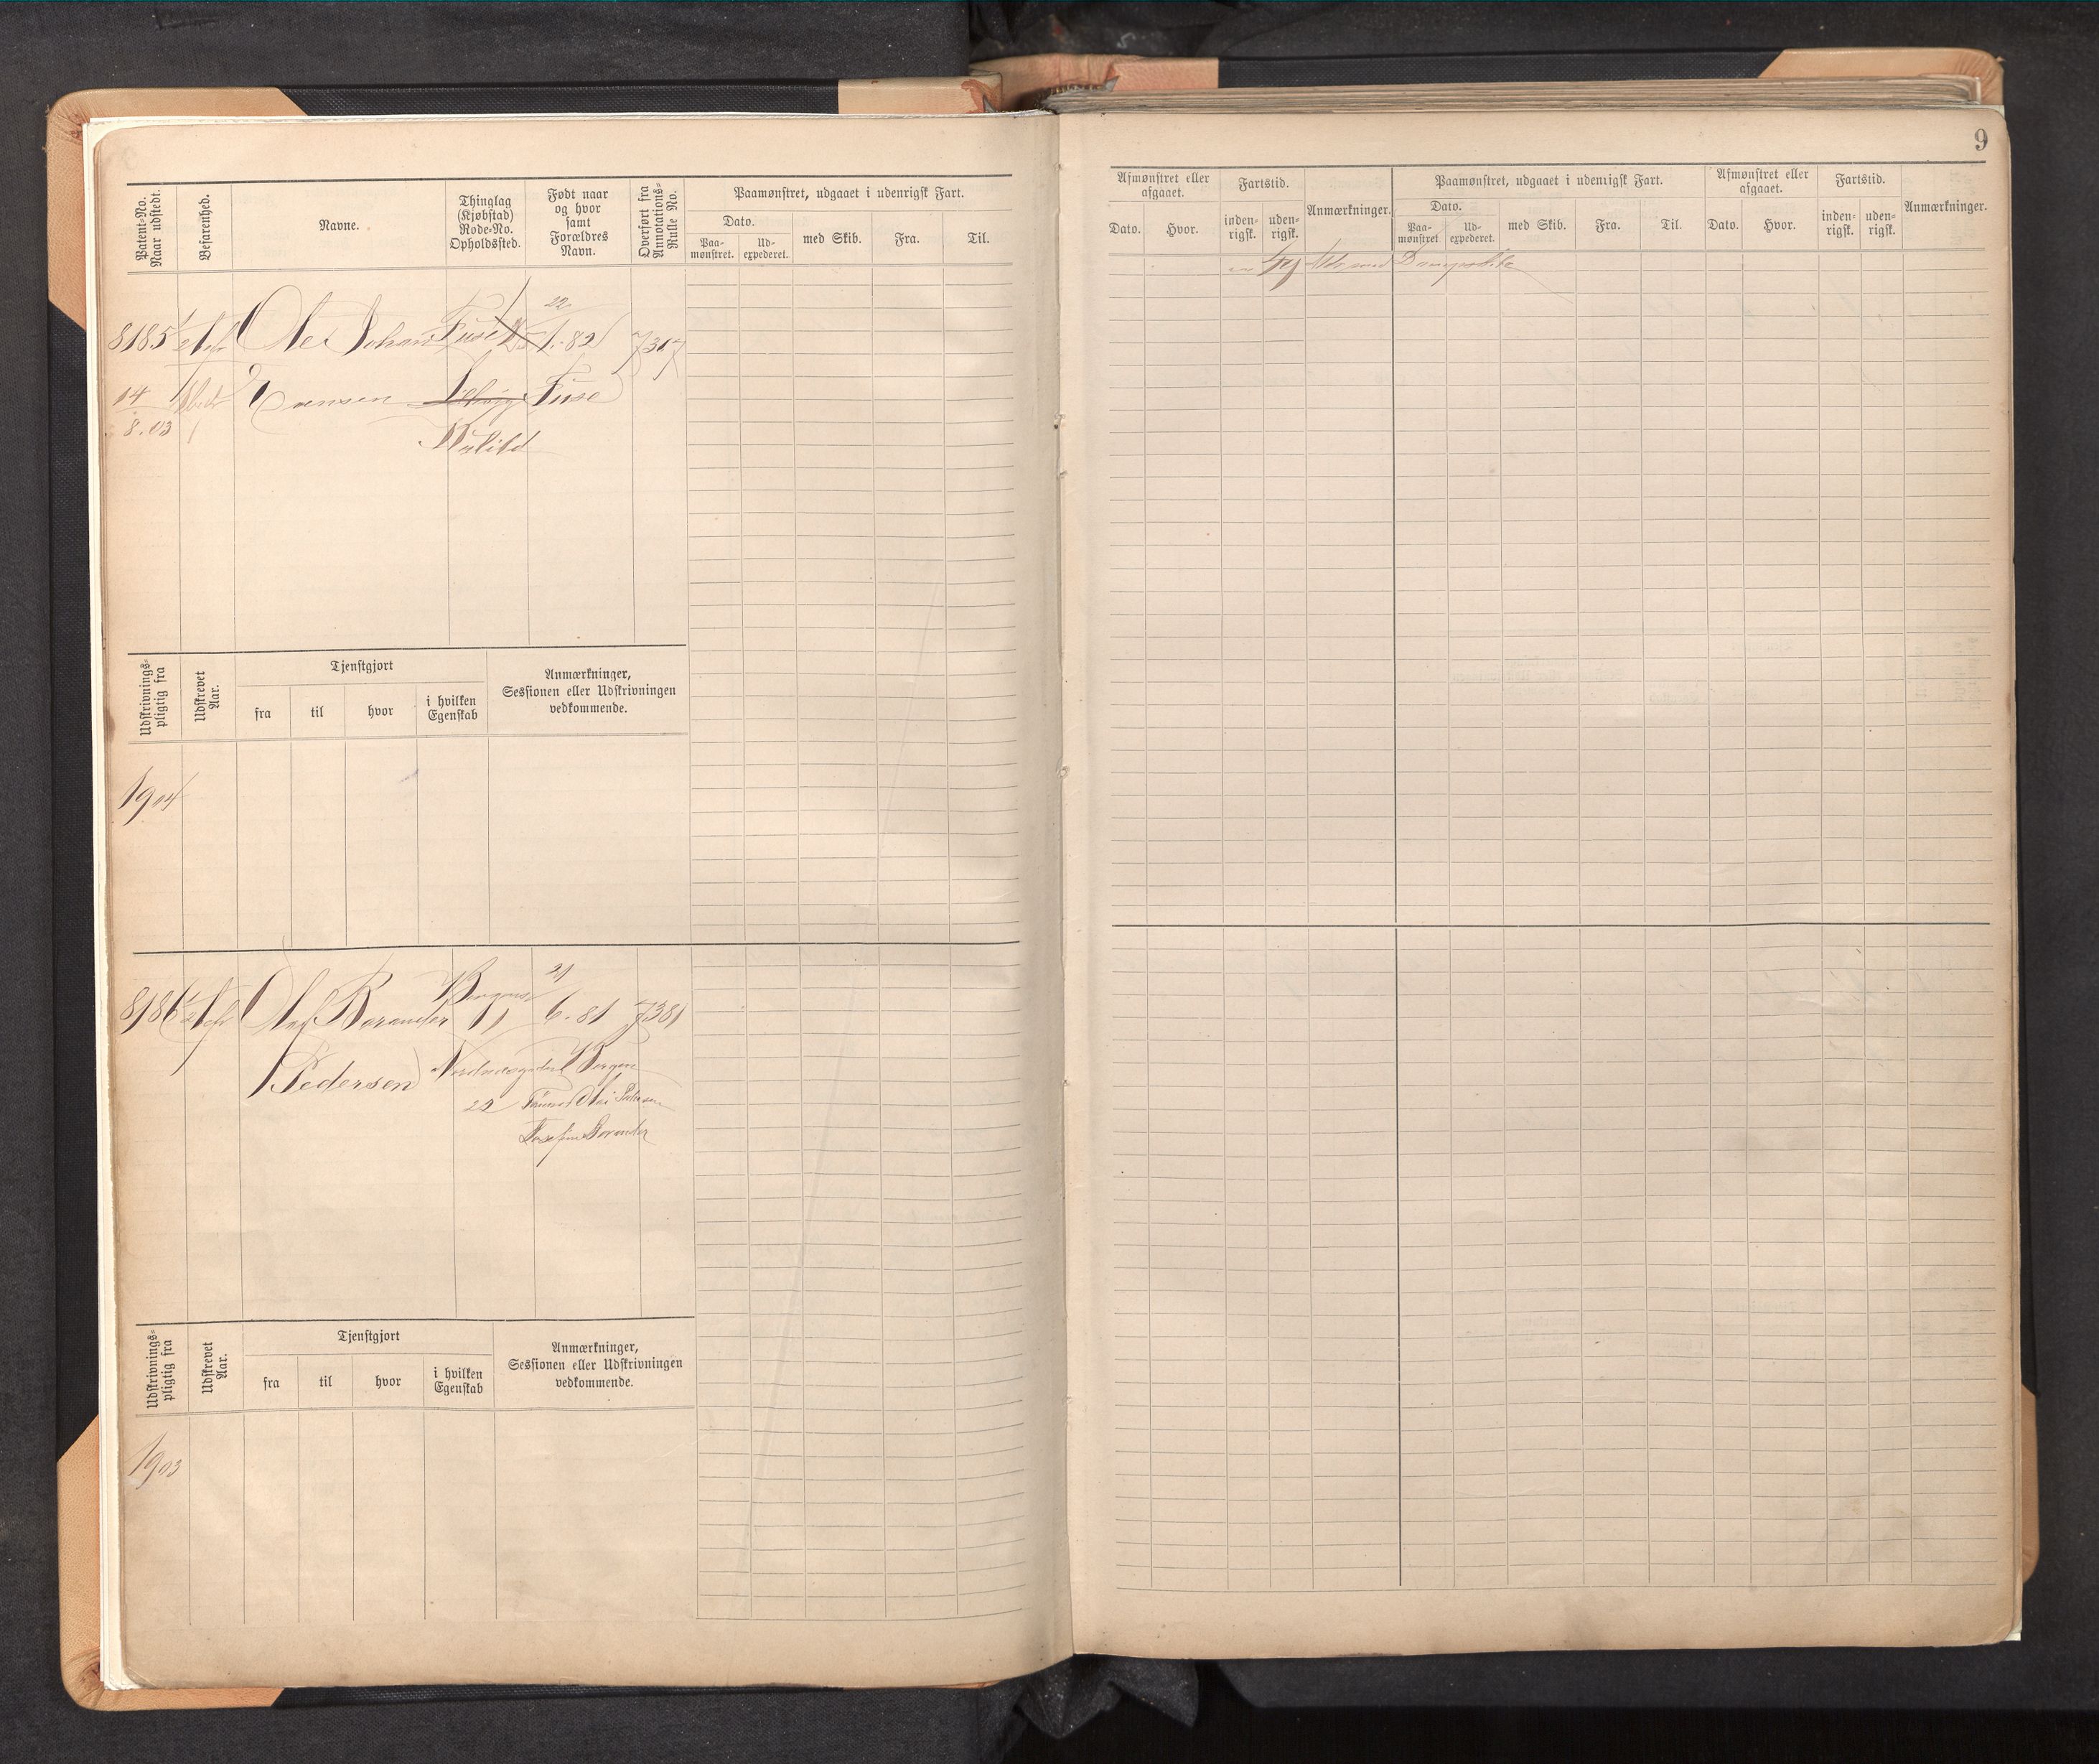 9
Patent-No. Naar udstedt.
Befarenhed.
Navne.
Thinglag (Kjøbstad) Rode-No. Opholdssted.
Født naar og hvor samt Forældres Navn.
Overført fra Annotations-Rulle No.
Paamønstret, udgaaet i udenrigsk Fart.
Dato.
Paa-mønstret.
Ud-expederet.
med Skib.
Fra.
Til.
8185
Ole Johan
Fuse
22
1.82
7317
14
8.03
Fuse
Udskrivnings-pligtig fra
Udskrevet Aar.
Tjenstgjort
fra
til
hvor
i hvilken Egenskab
Anmærkninger, Sessionen eller Udskrivningen vedkommende.
1904
8186
Bergens
21
6.81
7381
Pedersen
Bergen
Udskrivnings-pligtig fra
Udskrevet Aar.
Tjenstgjort
fra
til
hvor
i hvilken Egenskab
Anmærkninger, Sessionen eller Udskrivningen vedkommende.
1903
Afmønstret eller afgaaet.
Dato.
Hvor.
Fartstid.
inden-rigsk.
uden-rigsk.
Anmærkninger.
Paamønstret, udgaaet i udenrigsk Fart.
Dato.
Paa-mønstret
Ud-expederet.
med Skib.
Fra.
Til.
Afmønstret eller afgaaet.
Dato.
Hvor.
Fartstid.
inden-rigsk.
uden-rigsk.
Anmærkninger.